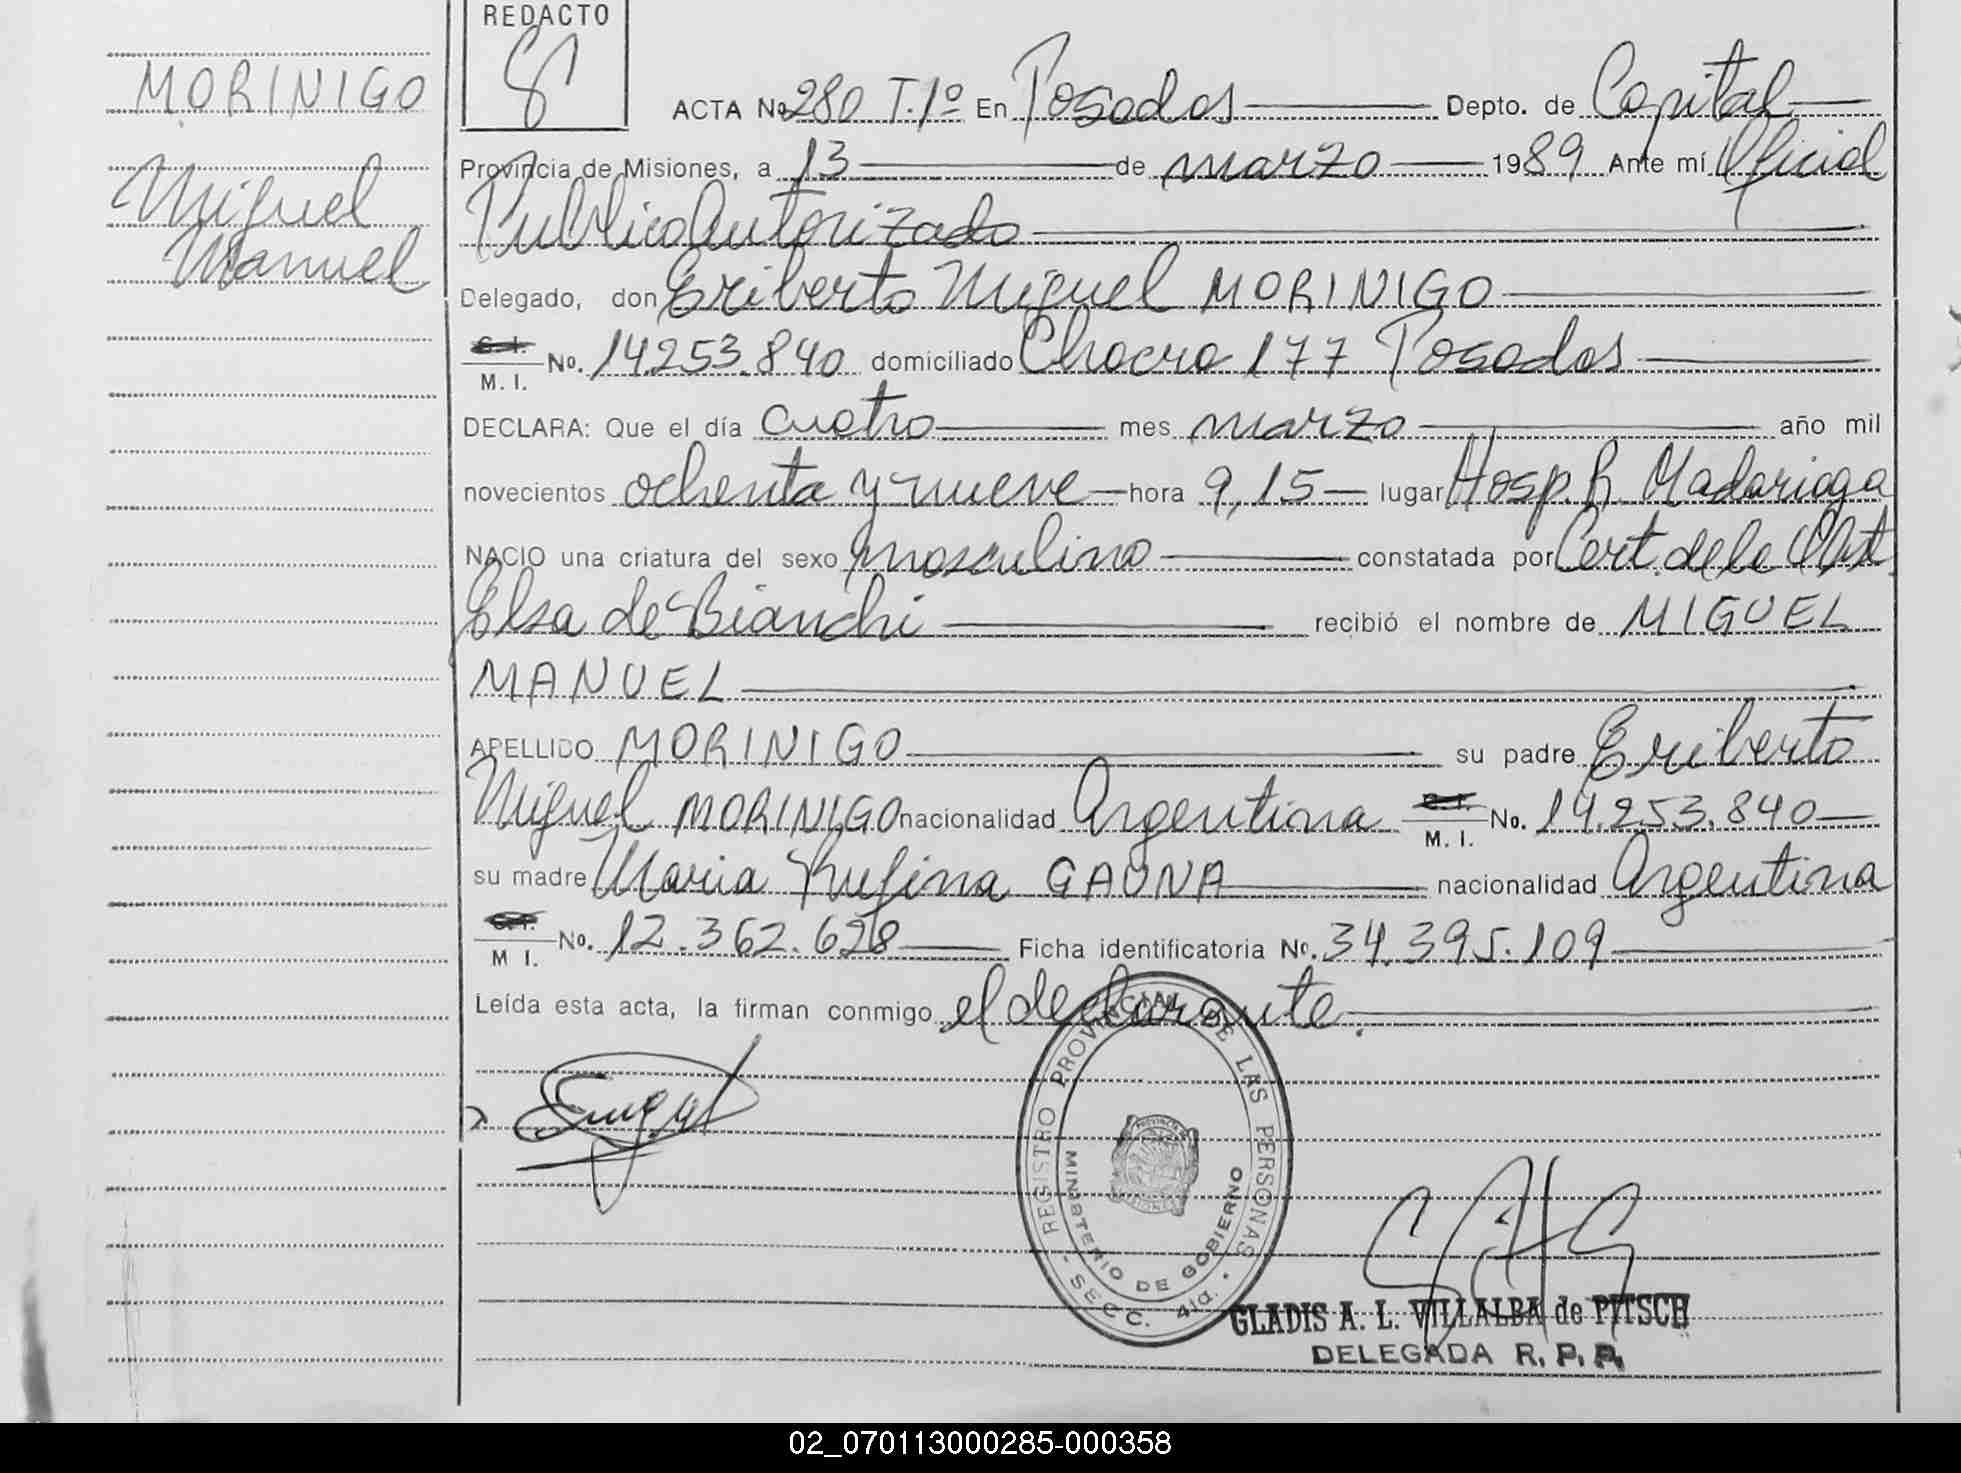 REDACTO
MORINIGO
Miguel
Manuel
ACTA No 280 T.1º En Posadas Depto. de Capital
Provincia de Misiones, a 13 de marzo 1989 Ante mí Oficial
Publico Autorizado
Delegado, don Eriberto Miguel MORINIGO
C. I.
M. I. No. 14.253.840 domiciliado Chacra 177 Posadas
DECLARA: Que el día cuatro mes marzo año mil
novecientos ochenta y nueve hora 9,15 lugar Hosp. R. Madariaga
NACIO una criatura del sexo masculino constatada por Cert. de la Obst.
Elsa de Bianchi recibió el nombre de MIGUEL
MANUEL
APELLIDO MORINIGO su padre Eriberto
Miguel MORINIGO nacionalidad Argentina C. I. M. I. No. 14.253.840
su madre Maria Rufina GAONA nacionalidad Argentina
C. I.
M I. No. 12.362.628 Ficha identificatoria No. 34.395.109
Leída esta acta, la firman conmigo el declarante.
REGISTRO PROVINCIAL DE LAS PERSONAS
MINISTERIO DE GOBIERNO
- SECC. 4ta. -
GLADIS A. L. VILLALBA de PITSCH
DELEGADA R. P. P.
02_070113000285-000358